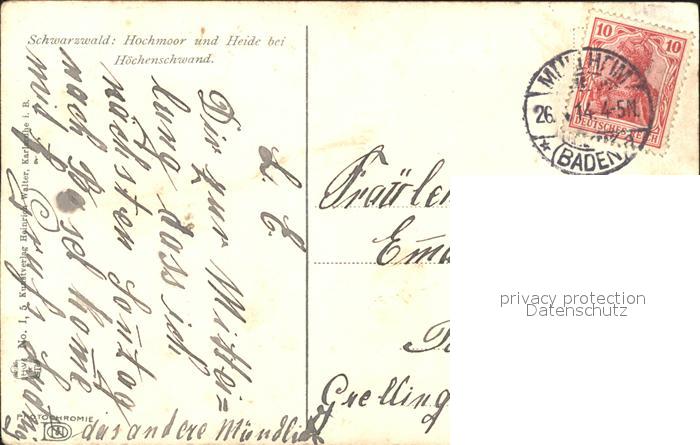 Schwarzwald: Hochmoor und Heide bei
Höchenschwand.
L. E.
Dir zur Mittei=
lung dass ich
nächsten Sontag
nach Basel kome
mit
Gruß
das andere Mündlich
No. I, 5 Kunstverlag Heinrich Walter, Karlsruhe i. B.
PHOTOCHROMIE
10 10
DEUTSCHES REICH
MÜLLHEIM
26. 14. 4-5N.
* (BADEN)
Fräule
Ema
Grelling
privacy protection
Datenschutz